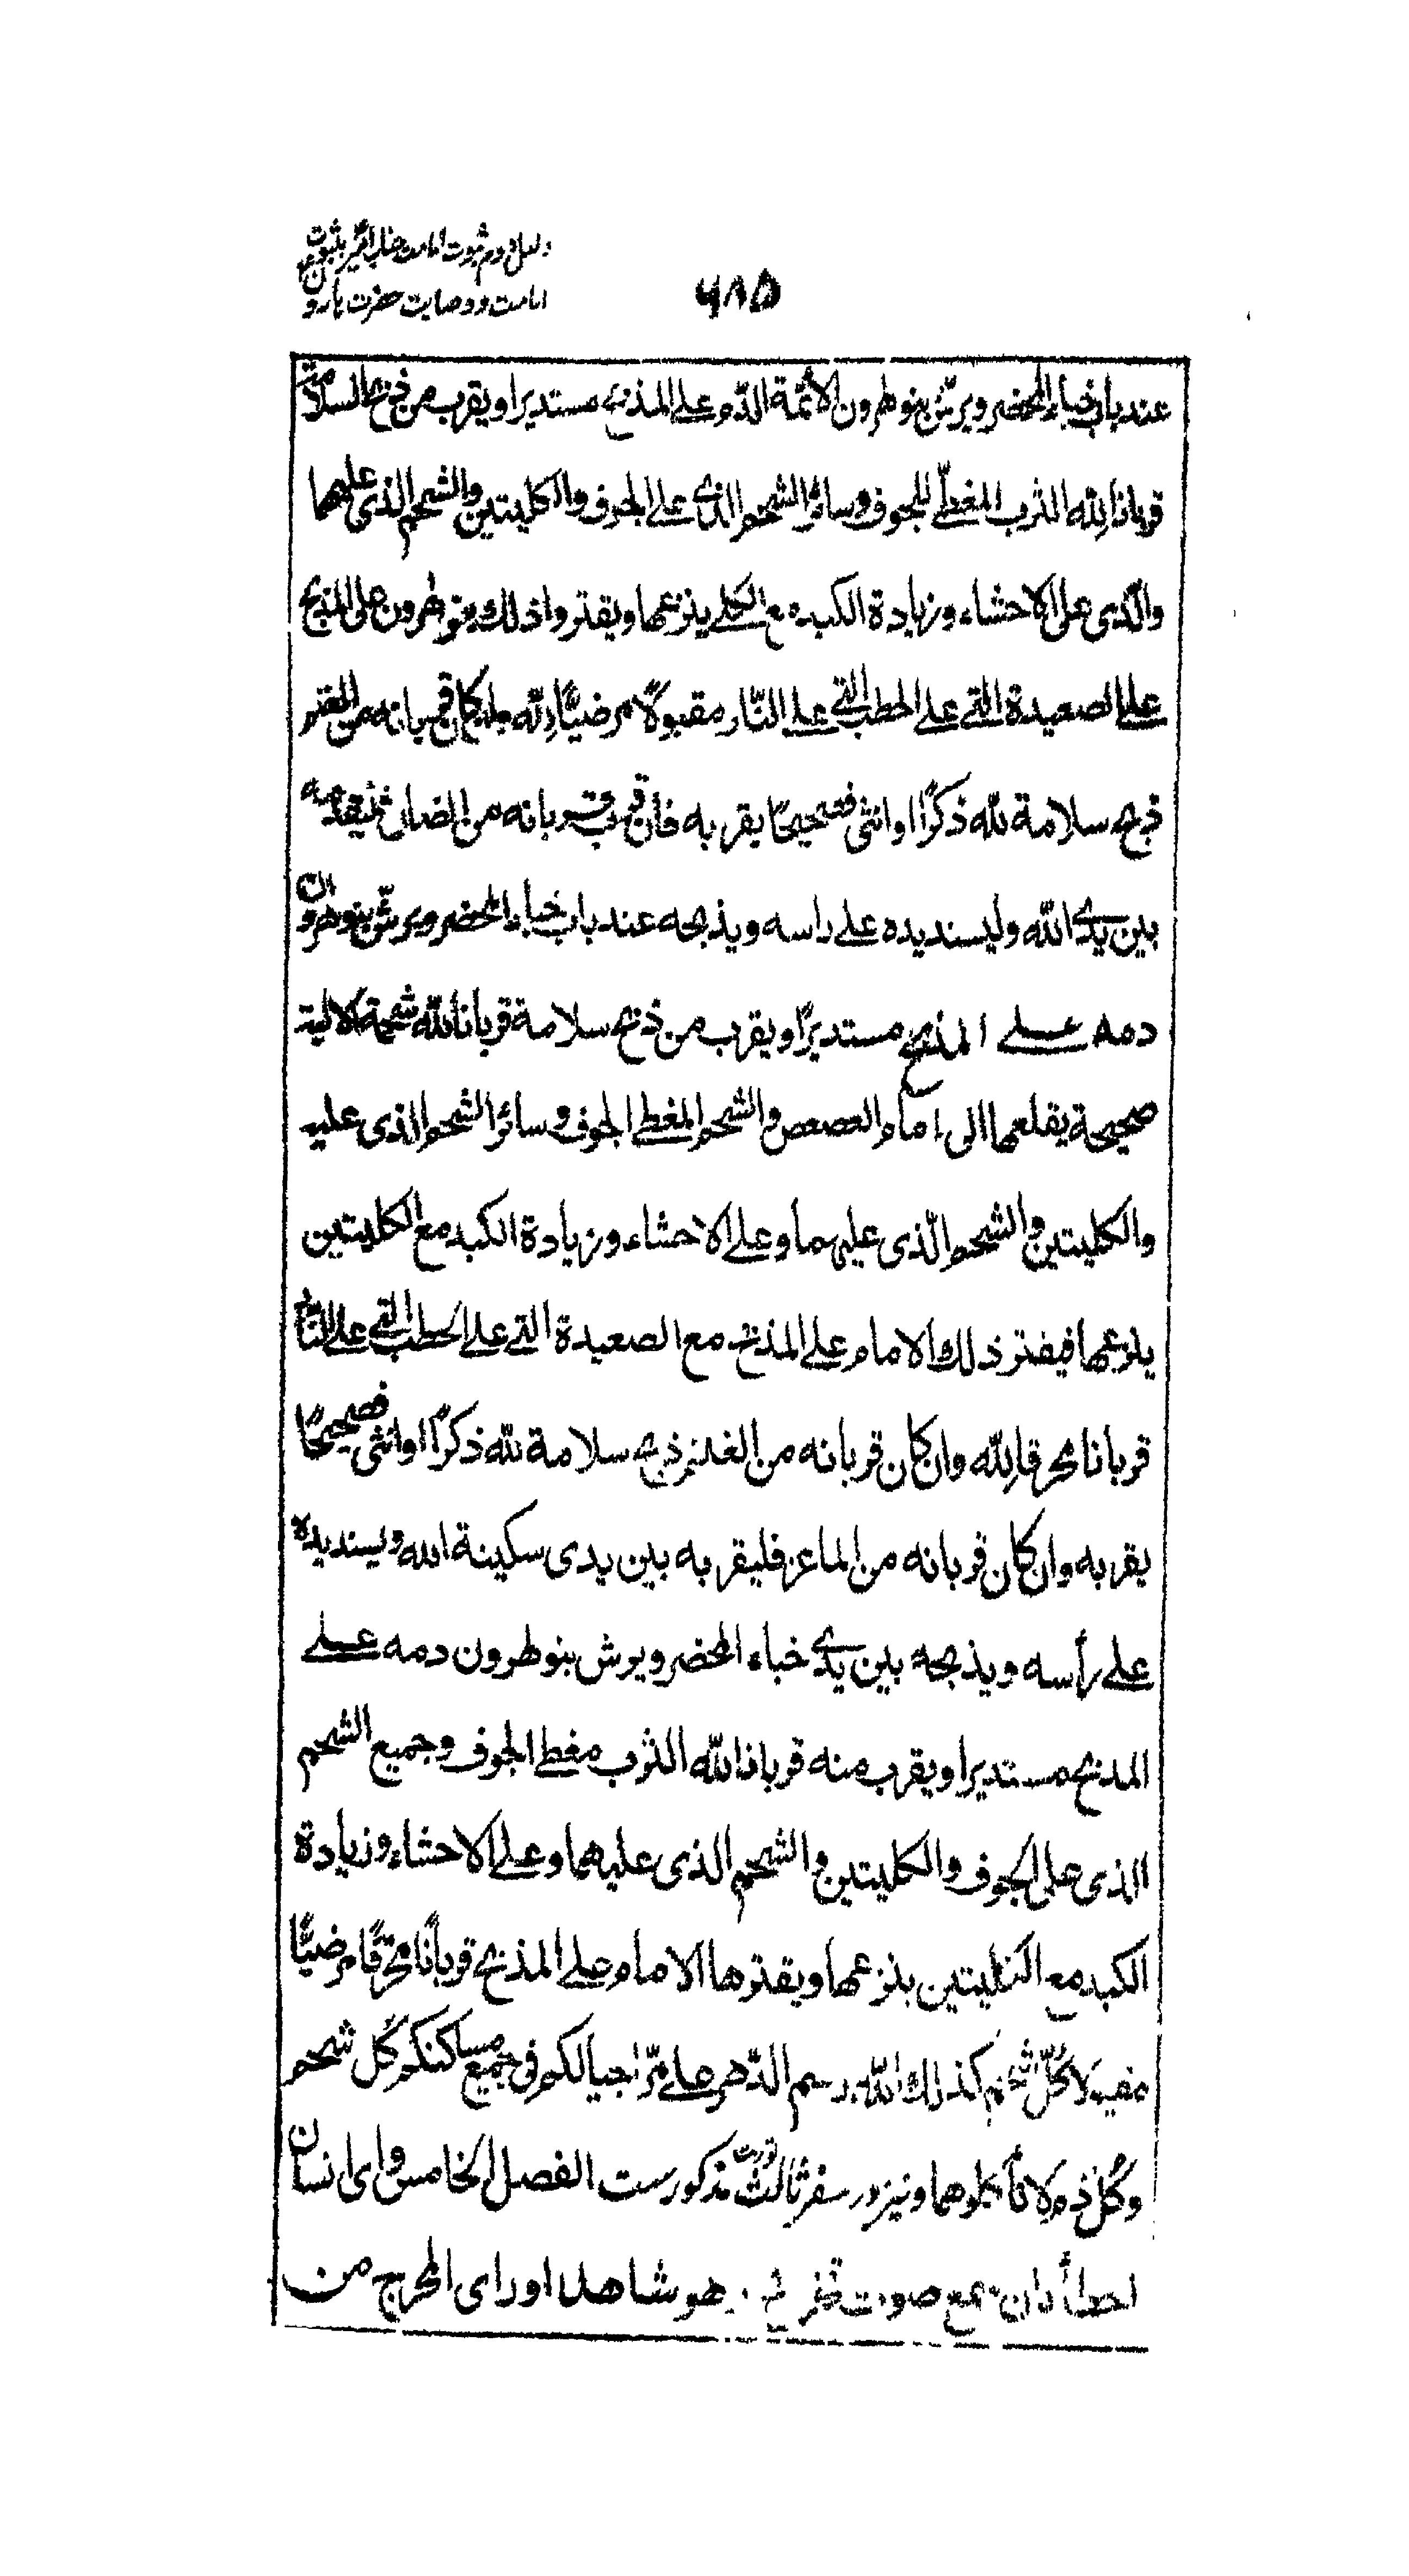 دلیل دوم ثبوت امامت جناب امیر بثبوت
امامت و وصایت حضرت هارون
۶۸۵
عند باب خباء المحضر ويرشّ بنو هرون الأئمة الدّم على المذبح مستديرا ويقرب من ذبح السلامة
قربانا لله الثرب المغطّى للجوف وسائر الشحم الذى على الجوف والكليتين والشحم الذى عليهما
والّذى على الاحشاء وزيادة الكبد مع الكلى ينزعها ويقتروا ذلك بنو هرون على المذبح
على الصعيدة التى على الحطب التى على النّار مقبولًا مرضيًّا لِلّه وان كان قربانه من الغنم
ذبح سلامة لله ذكرًا او انثى فصحيحًا يقربه فان قرب قربانه من الضان فليقدمه
بين يدى الله وليسند يده على راسه ويذبحه عند باب خباء المحضر ويرشّ بنو هرون
دمه على المذبح مستديرًا ويقرب من ذبح سلامة قربانا لله شحمة الالية
صحيحة يقلعها الى امام العصعص والشحم المغطى الجوف وسائر الشحم الذى عليه
والكليتين والشحم الّذى عليهما وعلى الاحشاء وزيادة الكبد مع الكليتين
ينزعها فيفتر ذلك الامام على المذبح مع الصعيدة التى على الحطب التى على النّار
قربانا محرقا لِلّه وان كان قربانه من الغنم ذبح سلامة لله ذكرًا او انثى فصحيحًا
يقربه وان كان قربانه من الماعز فليقربه بين يدى سكينة الله ويسند يده
على رأسه ويذبحه بين يدى خباء المحضر ويرش بنو هرون دمه على
المذبح مستديرا ويقرب منه قربانا لله الثرب مغطى الجوف وجميع الشحم
الذى على الجوف والكليتين والشحم الذى عليهما وعلى الاحشاء وزيادة
الكبد مع الكليتين ينزعها ويقترها الامام على المذبح قربانًا محرقًا مرضيًّا
كلّ شحم كذلك الله رسم الدّهر على مرّ اجيالكم فى جميع مساكنكم كل شحم
وكُلّ دم لا تأكلوهما ونيز در سفر ثالث توریت مذكورست الفصل الخامس واى انسان
اخطأ بان سمع صوت هو شاهد او راى المحرج من